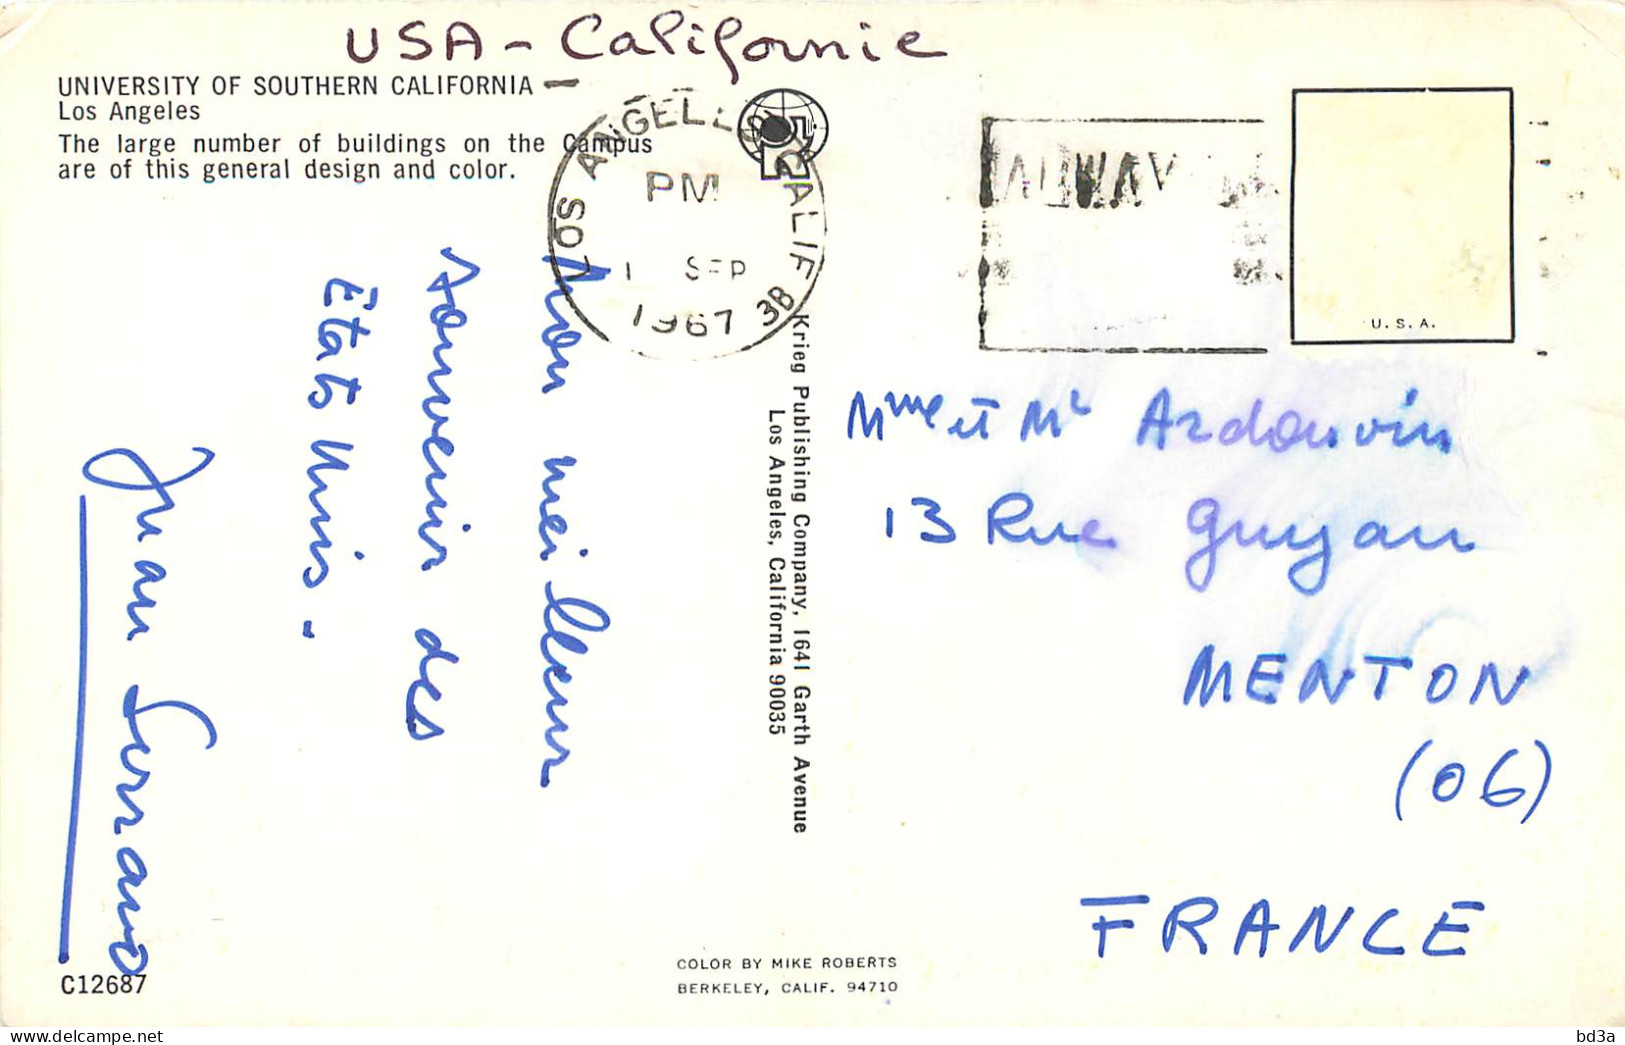 USA - Californie
UNIVERSITY OF SOUTHERN CALIFORNIA
Los Angeles
The large number of buildings on the Campus
are of this general design and color.
LOS ANGELES CALIF 3B
PM
1 SEP
1967
U.S.A.
Mon meilleur
souvenir des
États Unis.
Juan Serrano
Krieg Publishing Company, 1641 Garth Avenue
Los Angeles, California 90035
Mme et Mr Ardouvin
13 Rue Guyau
MENTON
(06)
FRANCE
C12687
COLOR BY MIKE ROBERTS
BERKELEY, CALIF. 94710
delcampe.net
bd3a